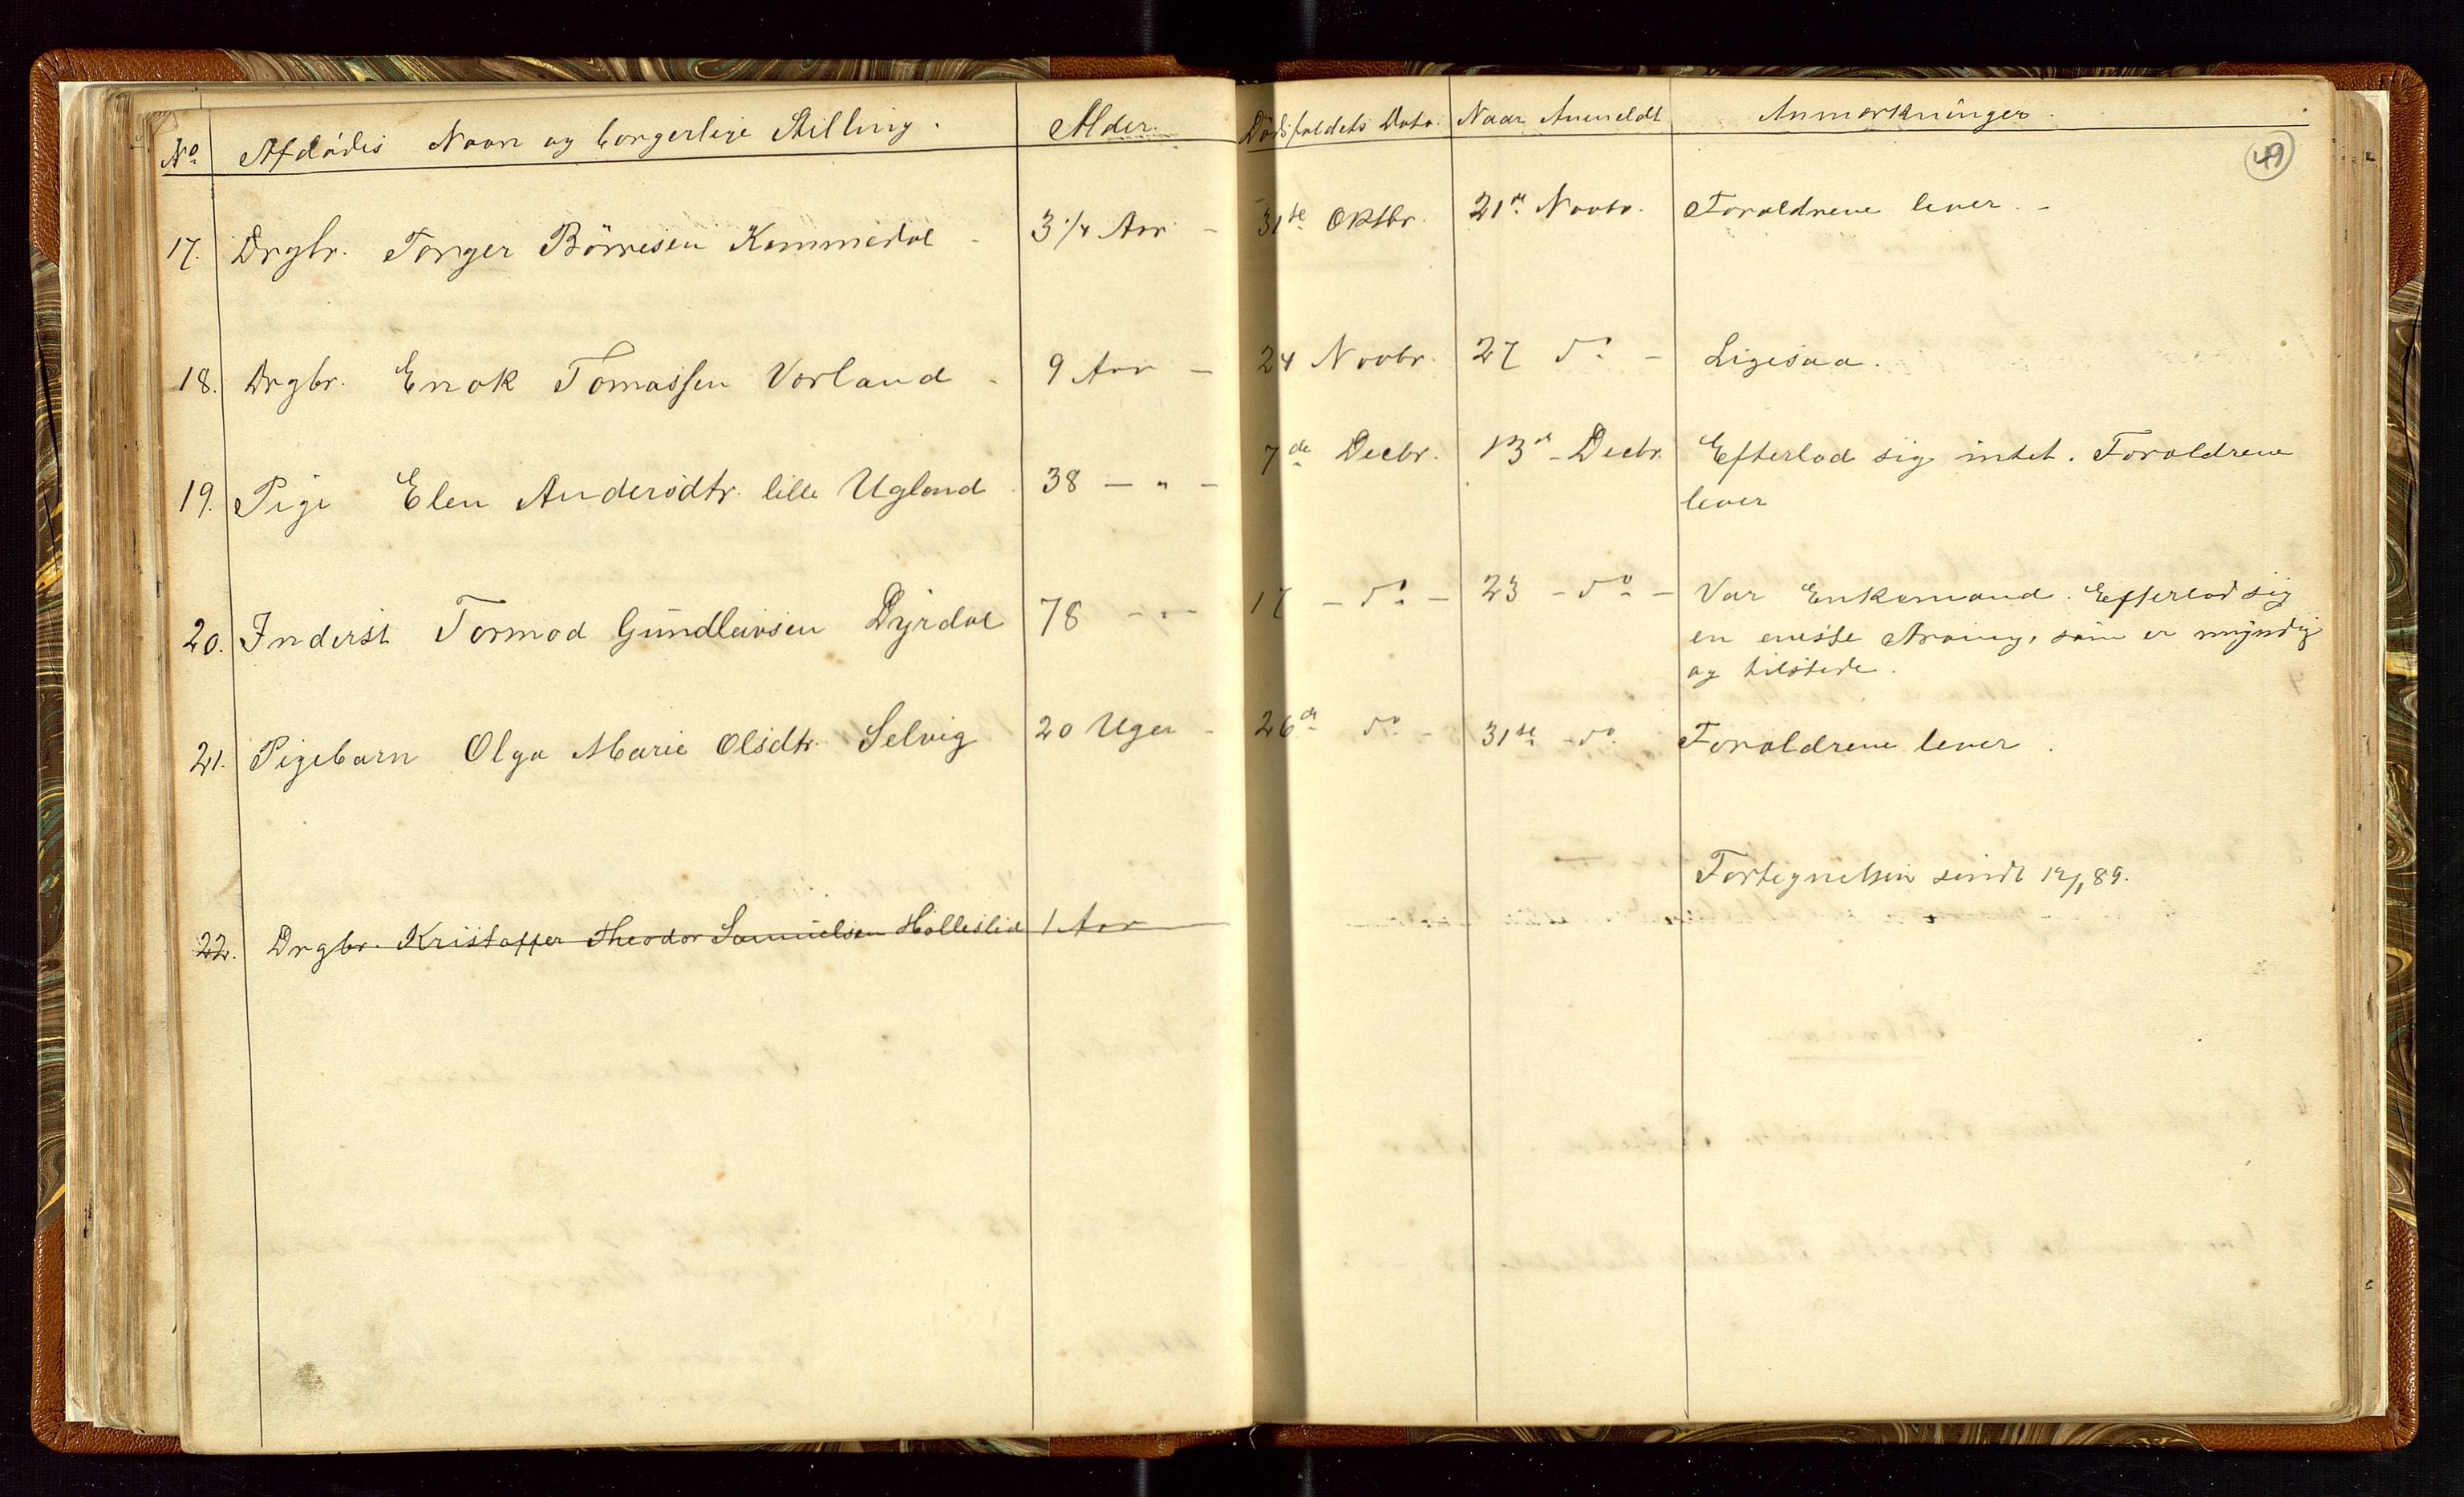 No Afdødes Navn og borgerlige Stilling. Alder. Dødsfaldets Dato. Naar Anmeldt Anmærkninger.
49
17. Drgbr. Torger Børresen Kommedal - 3 1/4 Aar - 31te Oktbr. 21de Novbr. Forældrene lever. -
18. Drgbr. Enok Tomassen Varland - 9 Aar - 24 Novbr. 27 do - Ligesaa.
19. Pige Elen Andersdtr. lille Ugland 38 - " - 7de Decbr. 13de Decbr. Efterlod sig intet. Forældrene
lever
20. Inderst Tormod Gundleivsen Dyrdal 78 - " - 17 - do - 23 - do - Var Enkemand. Efterlod sig
en eneste Arving, som er myndig
og tilstede.
21. Pigebarn Olga Marie Olsdtr. Selvig 20 Uger - 26de do - 31te - do Forældrene lever.
Fortegnelsen sendt 12/1 89.
22. Drgbr. Kristoffer Theodor Samuelsen Holleslid 1 Aar